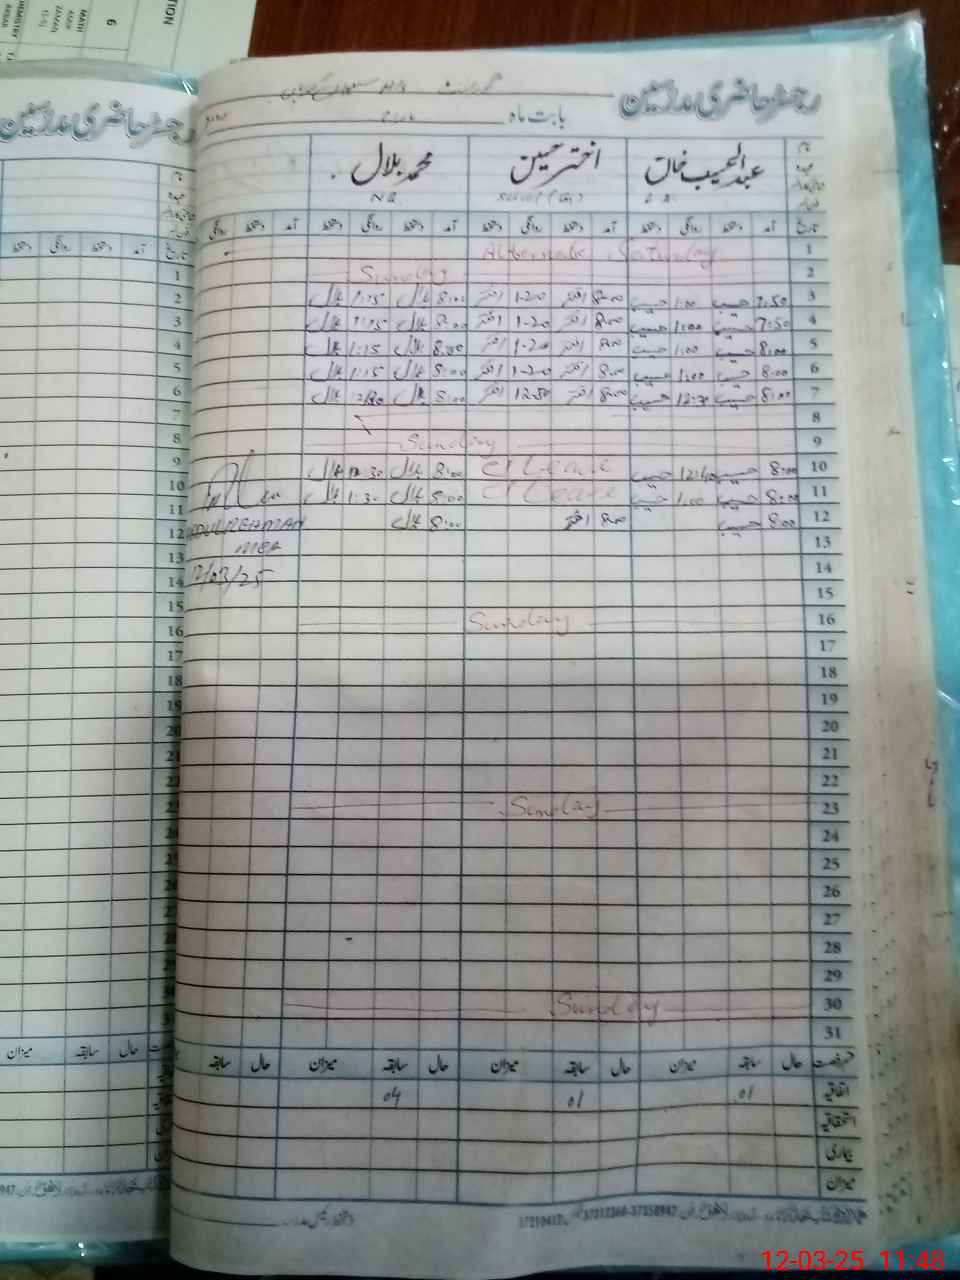 رجسٹر حاضری مدرسین
بابت ماہ
عبدالحسیب خان
اختر حسین
محمد بلال
NQ
تاریخ آمد دستخط روانگی دستخط آمد دستخط روانگی دستخط آمد دستخط روانگی دستخط آمد دستخط روانگی
1 Alternate Saturday
2 Sunday
3 7:50 حسیب 1:00 حسیب 8:00 اختر 1-20 اختر 8:00 بلال 1:15 بلال
4 7:50 حسیب 1:00 حسیب 8:00 اختر 1-20 اختر 8:00 بلال 1:15 بلال
5 8:00 حسیب 1:00 حسیب 8:00 اختر 1-20 اختر 8:00 بلال 1:15 بلال
6 8:00 حسیب 1:00 حسیب 8:00 اختر 1-20 اختر 8:00 بلال 1:15 بلال
7 8:00 حسیب 12:30 حسیب 8:00 اختر 12.50 اختر 8:00 بلال بلال
8
9 Sunday
10 8:00 حسیب 12:40 حسیب Cl Leave 8:00 بلال 12:30 بلال
11 8:00 حسیب 1:00 حسیب Cl Leave 8:00 بلال 1:30 بلال
12 8:00 حسیب 8:00 اختر 8:00 بلال
ABDUL REHMAN
MEA
12/03/25
13
14
15
16 Sunday
17
18
19
20
21
22
23 Sunday
24
25
26
27
28
29
30 Sunday
31
حال سابقہ میزان حال سابقہ میزان حال سابقہ میزان حال سابقہ
اتفاقیہ 01 01 04
استحقاقیہ
بیماری
میزان
37312360-37358947
12-03-25 11:48
رجسٹر حاضری مدرسین
تاریخ آمد دستخط روانگی دستخط
1
2
3
4
5
6
7
8
9
10
11
12
13
14
15
16
17
18
19
20
21
22
23
24
25
26
27
28
29
حال سابقہ میزان
TION
6
MATH
ZAMAN